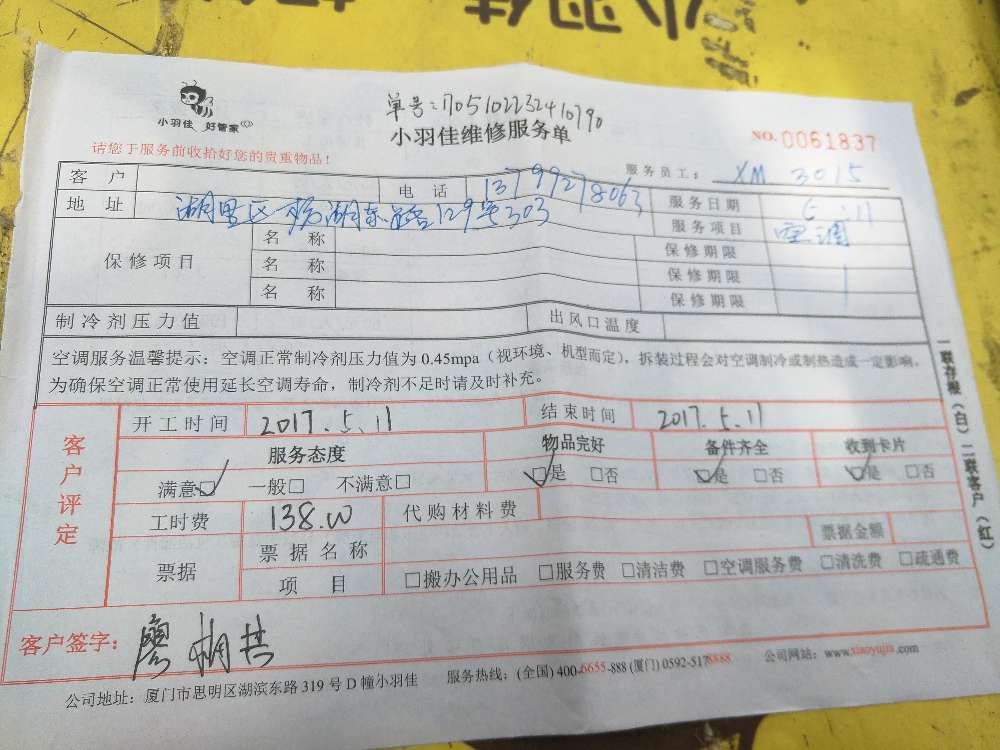 小羽佳
小羽佳 好管家
单号:1705102232410790
小羽佳维修服务单
NO.0061837
请您于服务前收拾好您的贵重物品!
服务员工: XM 3015
客户 电话 13799278063 服务日期 5.11
地址 湖里区 湖东路129号303 服务项目 空调
保修项目 名称 保修期限
名称 保修期限
名称 保修期限
制冷剂压力值 出风口温度
空调服务温馨提示:空调正常制冷剂压力值为0.45mpa(视环境、机型而定),拆装过程会对空调制冷或制热造成一定影响,
为确保空调正常使用延长空调寿命,制冷剂不足时请及时补充。
客户评定
开工时间 2017.5.11 结束时间 2017.5.11
服务态度 物品完好 备件齐全 收到卡片
满意☑ 一般□ 不满意□ ☑是 □否 ☑是 □否 ☑是 □否
工时费 138.00 代购材料费
票据 票据名称 票据金额
项目 □搬办公用品 □服务费 □清洁费 □空调服务费 □清洗费 □疏通费
客户签字:
公司地址:厦门市思明区湖滨东路319号D幢小羽佳 服务热线:(全国)400-6655-888(厦门)0592-5178888 公司网站:www.xiaoyujia.com
一联存根(白)二联客户(红)